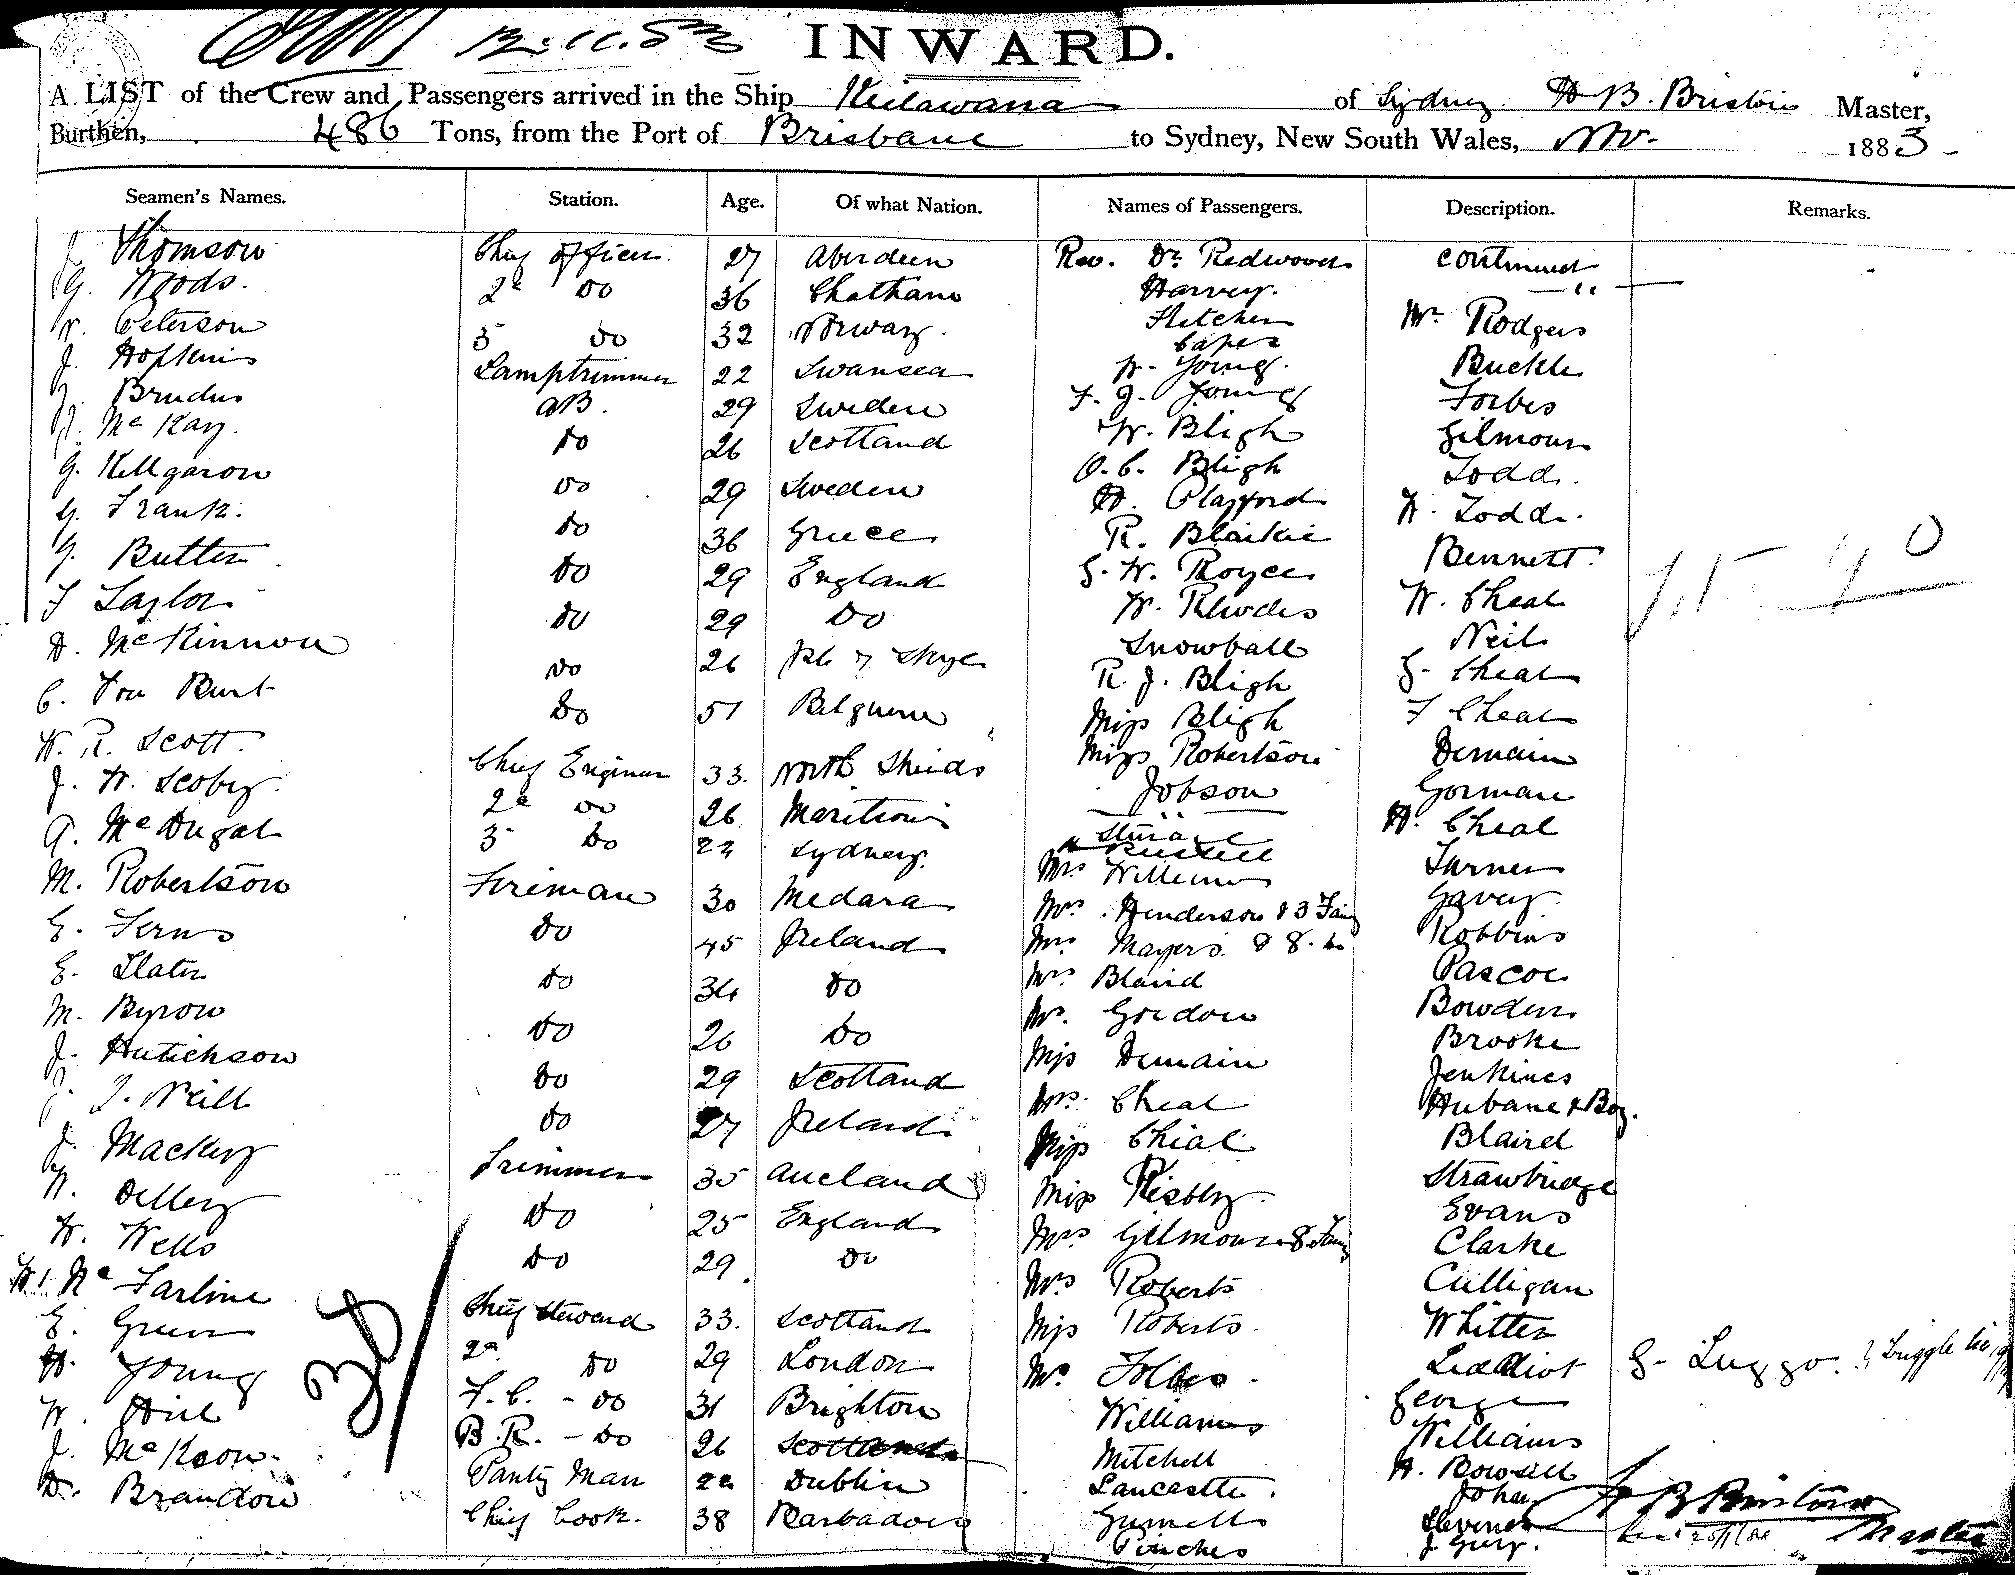 12.11.83 INWARD.
A LIST of the Crew and Passengers arrived in the Ship Keilawarra of Sydney H B. Bristow Master,
Burthen, 486 Tons, from the Port of Brisbane to Sydney, New South Wales, Nov. 1883
Seamen's Names. Station. Age. Of what Nation. Names of Passengers. Description. Remarks.
J. Thomson Chief Officer 27 Aberdeen Rev. Dr. Redwood continued
G. Woods. 2d Do 36 Chatham Harvey. "
Peterson 3 Do 32 Norway. Fletcher Mr Rodgers
J. Hopkins Lamptrimmer 22 Swansea Capes Buckle
Brudus AB. 29 Sweden W. Young. Forbes
McKay. Do 26 Scotland F. J. Young Gilmour
G. Killgaron Do 29 Sweden W. Bligh Todd.
G. Frank. Do 36 Greece O. C. Bligh W. Todd.
G. Butter Do 29 England H. Playford Bennett.
F Taylor Do 29 Do R. Blaikie W. Cheal
D. McKinnon Do 26 Isle of Skye G. W. Royce Neil
C. Von Burt Do 51 Belgium W. Rhodes G. Cheal
W. R. Scott. Chief Engineer 33. North Shields Snowball F Cheal
J. W. Scoby. 2d Do 26 Maritious R. J. Bligh Demain
A. McDugal 3 Do 22 Sydney. Miss Bligh Gorman
M. Robertson Fireman 30 Medara Miss Robertson H. Cheal
E. Ferns Do 45 Ireland Jobson Turner
E. Slater Do 34 Do Gavey.
M. Byrow Do 26 Do Mrs Williams Robbins
J. Hutichson Do 29 Scotland Mrs. Henderson & 3 Famy Pascoe
J. Neill Do 27 Ireland Mrs Mayers & 8. Do Bowden
J. Mackey Trimmer 35 Aucland Mrs Blaird Brooke
W. Dilley Do 25 England Mr. Gordon Jenkines
W. Wells Do 29. Do Miss Demain Hubane & Boy.
W. McFarline Chief Steward 33. Scotland Mrs. Cheal Blaird
E. Green 2d Do 29 London Miss Cheal Strawbridge
H. Young F. C. - Do 31 Brighton Miss Risbey. Evans
W. Hill B. R. - Do 26 Scotland Mrs Gilmour & 8 Famy Clarke
J. McKeown. Pantry Man 22 Dublin Mrs Roberts Culligan
D. Brandon Chief Cook. 38 Barbadoes Miss Roberts. Whitter
Mr. Forbes. Leddiot G. Luggo.
Williams George
Mitchell Williams
Lancaster. H. Bowdell
Gurnett John
Pinches Stevenson
J. Guy.
30/
H B Bristow
Master